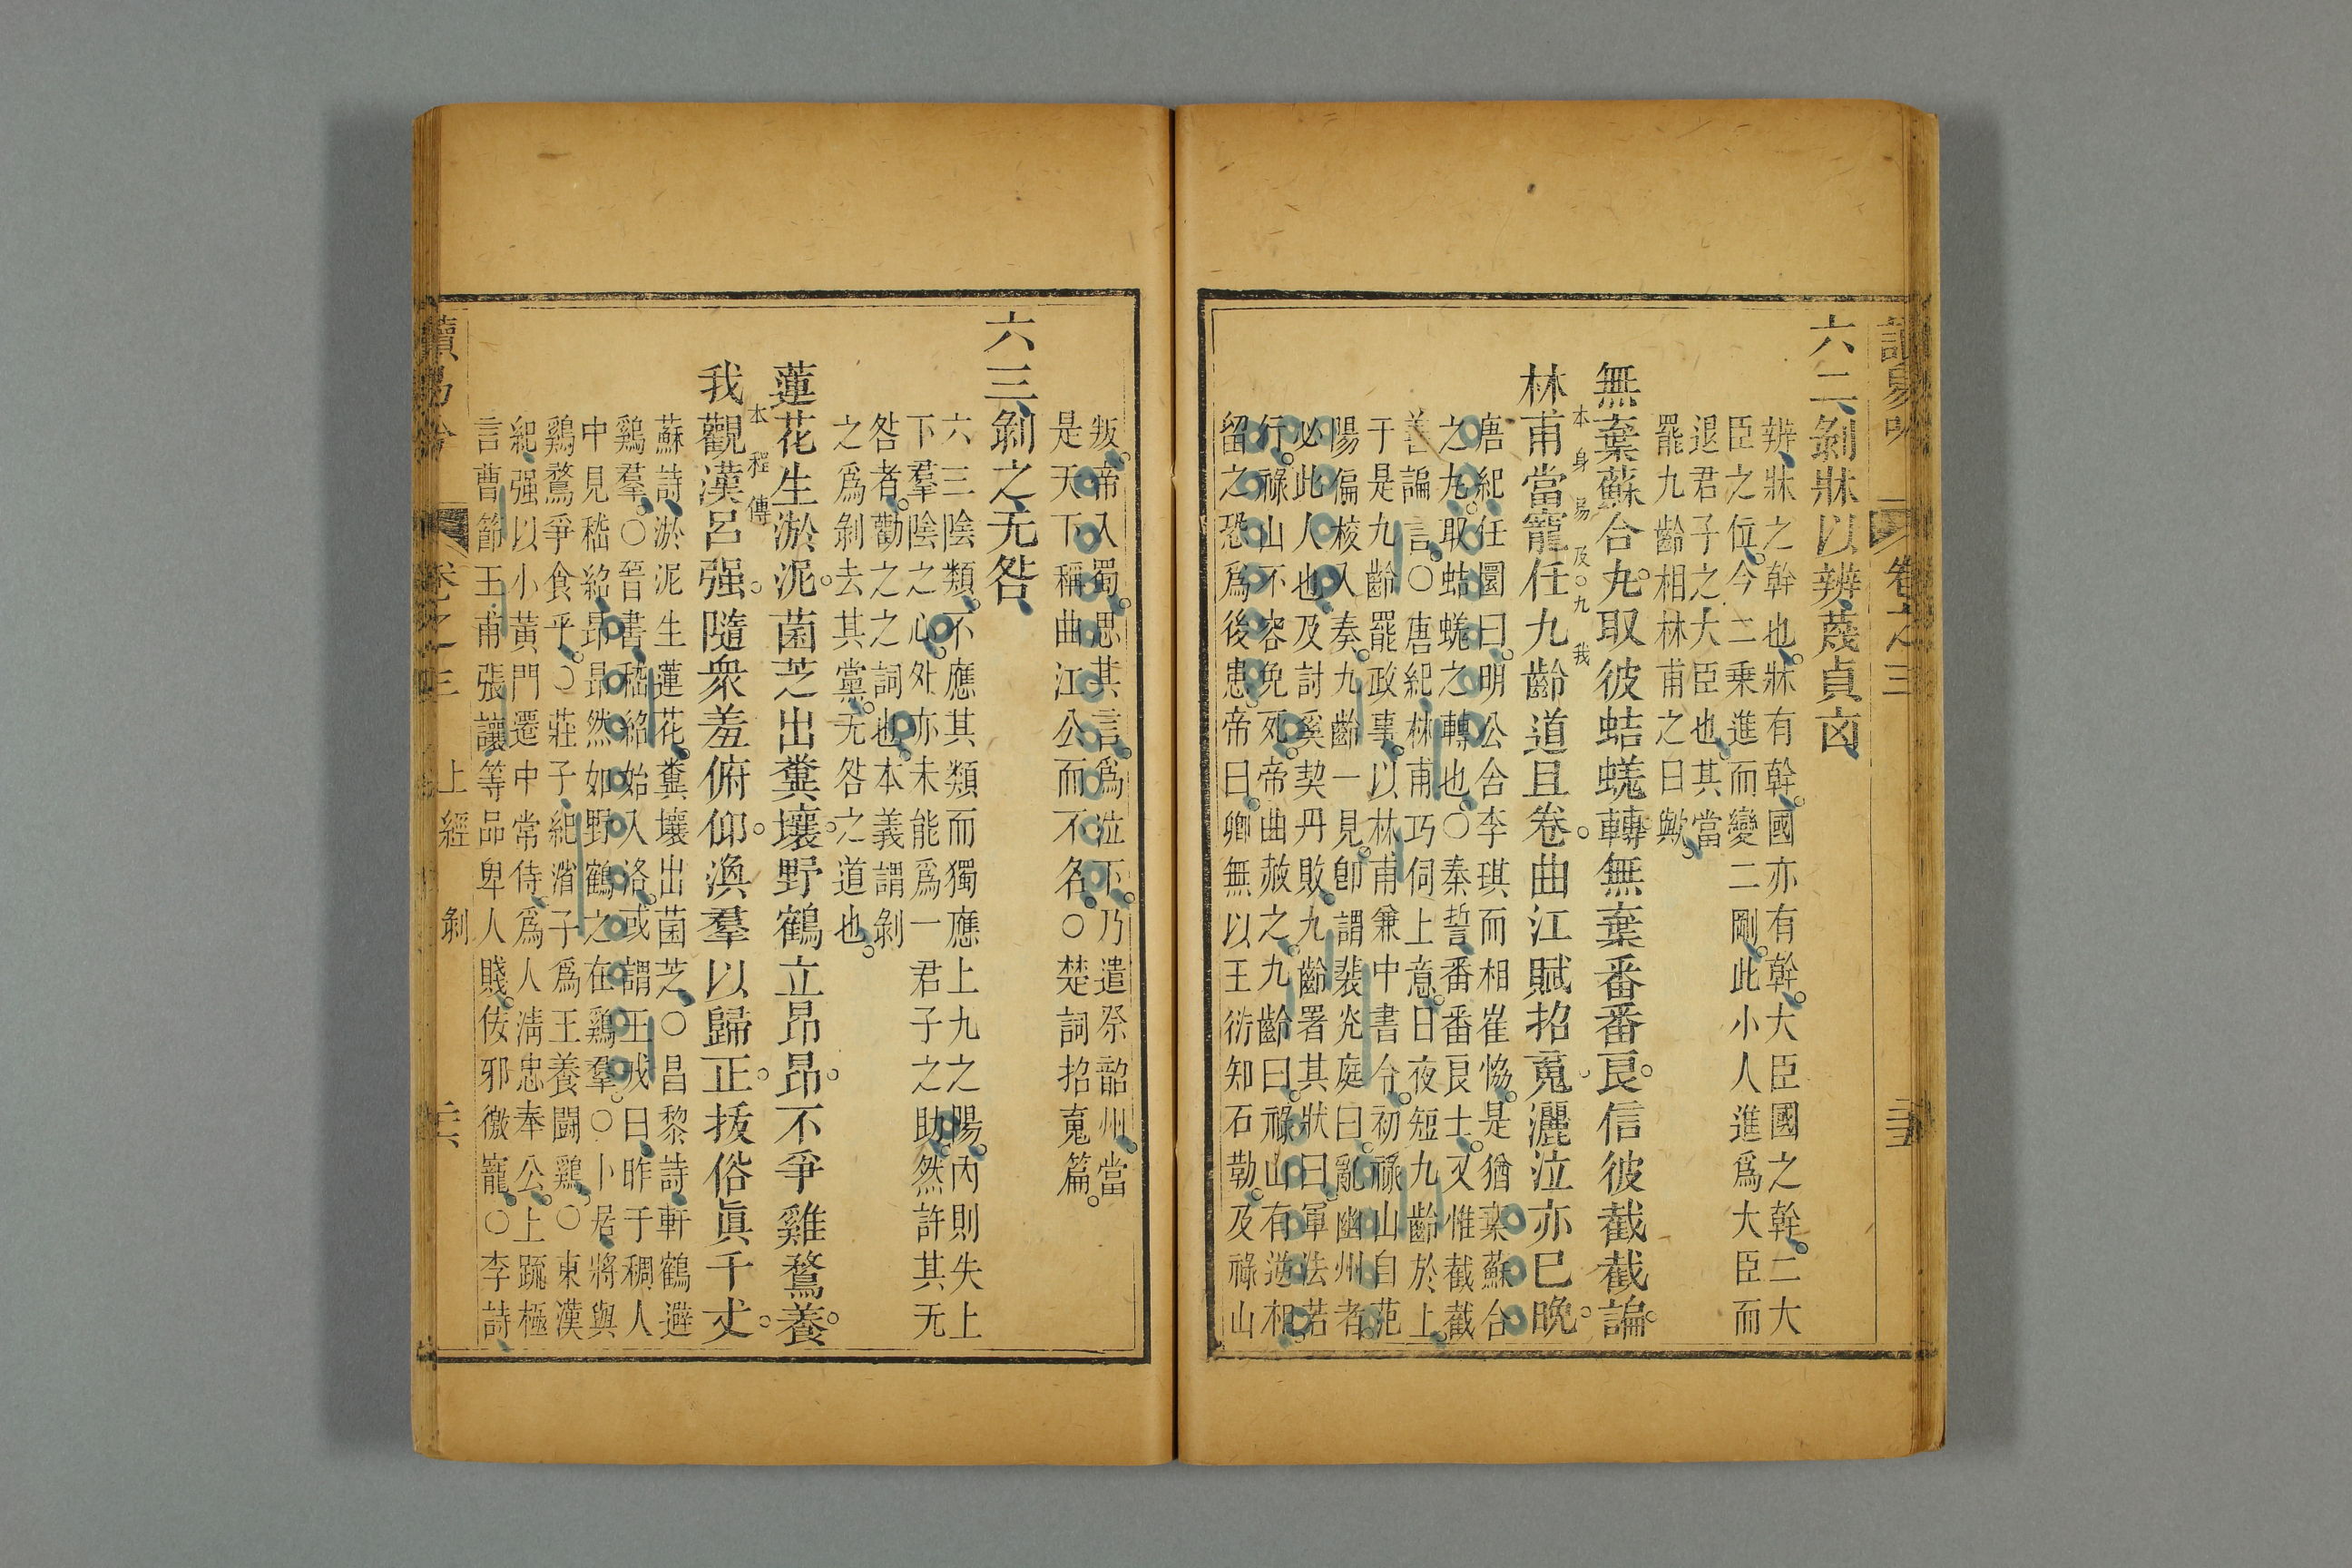 讀易吟 卷之三 三五
六二剝牀以辨蔑貞㐫
辨牀之幹也牀有幹國亦有幹大臣國之幹二大
臣之位今二乗進而變二剛此小人進爲大臣而
退君子之大臣也其當
罷九齡相林甫之日歟
無棄蘇合丸取彼蛣蜣轉無棄番番良信彼截截諞
本身易及○九我
林甫當寵任九齡道且卷曲江賦招䰟灑泣亦已晚
唐紀任圜曰明公舍李琪而相崔恊是猶棄蘇合
之丸取蛣蜣之轉也○秦誓番番良士又惟截截
善諞言○唐紀林甫巧伺上意日夜短九齡於上
于是九齡罷政事以林甫兼中書令初祿山自范
陽偏校入奏九齡一見卽謂裴光庭曰亂幽州者
必此人也及討奚契丹敗九齡署其狀曰軍法若
行祿山不容免死帝曲赦之九齡曰祿山有逆相
留之恐爲後患帝曰卿無以王衍知石勒及祿山
叛帝入蜀思其言爲泣下乃遣祭韶州當
是天下稱曲江公而不名○楚詞招䰟篇
六三剝之无咎
六三陰類不應其類而獨應上九之陽內則失上
下羣陰之心外亦未能爲一君子之助然許其无
咎者勸之之詞也本義謂剝
之爲剝去其黨无咎之道也
蓮花生淤泥菌芝出糞壤野鶴立昂昂不爭雞鶩養
本程傳
我觀漢呂强隨衆羞俯仰渙羣以歸正拔俗眞千丈
蘇詩淤泥生蓮花糞壤出菌芝○昌黎詩軒鶴避
鷄羣○晉書嵇紹始入洛或謂王戎曰昨于稠人
中見嵇紹昂昂然如野鶴之在鷄羣○卜居將與
鷄鶩爭食乎○莊子紀渻子爲王養鬪鷄○東漢
紀强以小黃門遷中常侍爲人淸忠奉公上䟽極
言曹節王甫張讓等品卑人賤佞邪徼寵○李詩
讀易吟 卷之三 上經 剝 三六